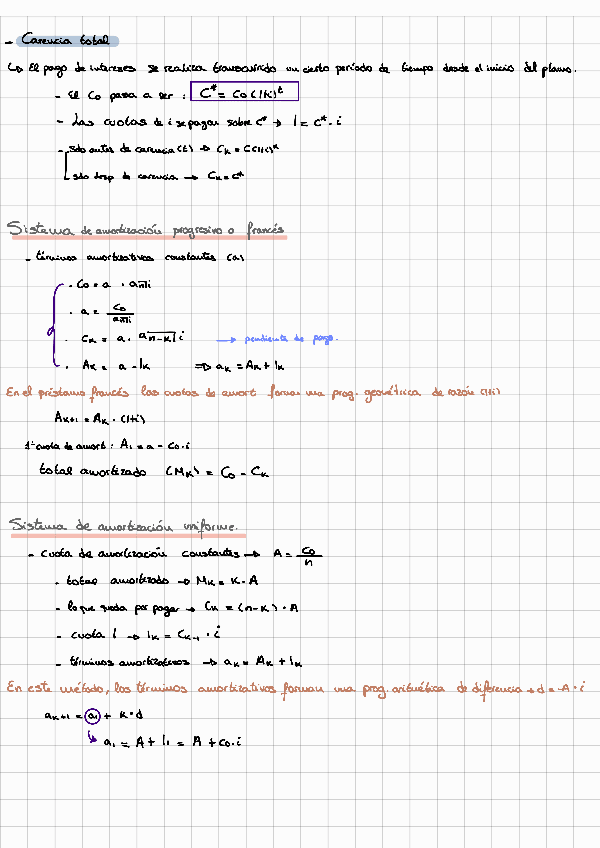 - Carencia total
↳ El pago de intereses se realiza transcurrido un cierto período de tiempo desde el inicio del plamo.
- El Co pasa a ser : C* = Co(1+i)^t
- Las cuotas de i se pagan sobre C* → I = C* · i
- sdo antes de carencia (t) → Ck = C(1+i)^k
sdo desp de carencia → Ck = C*
Sistema de amortización progresivo o francés
- términos amortizativos constantes (a)
· Co = a · an̅|i
· a = Co / an̅|i
· Ck = a · an-k|i → pendiente de pago.
· Ak = a - Ik ⇒ ak = Ak + Ik
En el préstamo francés las cuotas de amort forman una prog. geométrica de razón (1+i)
Ak+1 = Ak · (1+i)
1ª cuota de amort : A1 = a - Co·i
total amortizado (Mk) = Co - Ck
Sistema de amortización uniforme.
- cuota de amortización constantes → A = Co / n
- total amortizado → Mk = K · A
- lo que queda por pagar → Ck = (n-k) · A
- cuota I → Ik = Ck-1 · i
- términos amortizativos → ak = Ak + Ik
En este método, los términos amortizativos forman una prog. aritmética de diferencia → d = -A · i
ak+1 = a1 + k·d
↳ a1 = A + I1 = A + Co·i